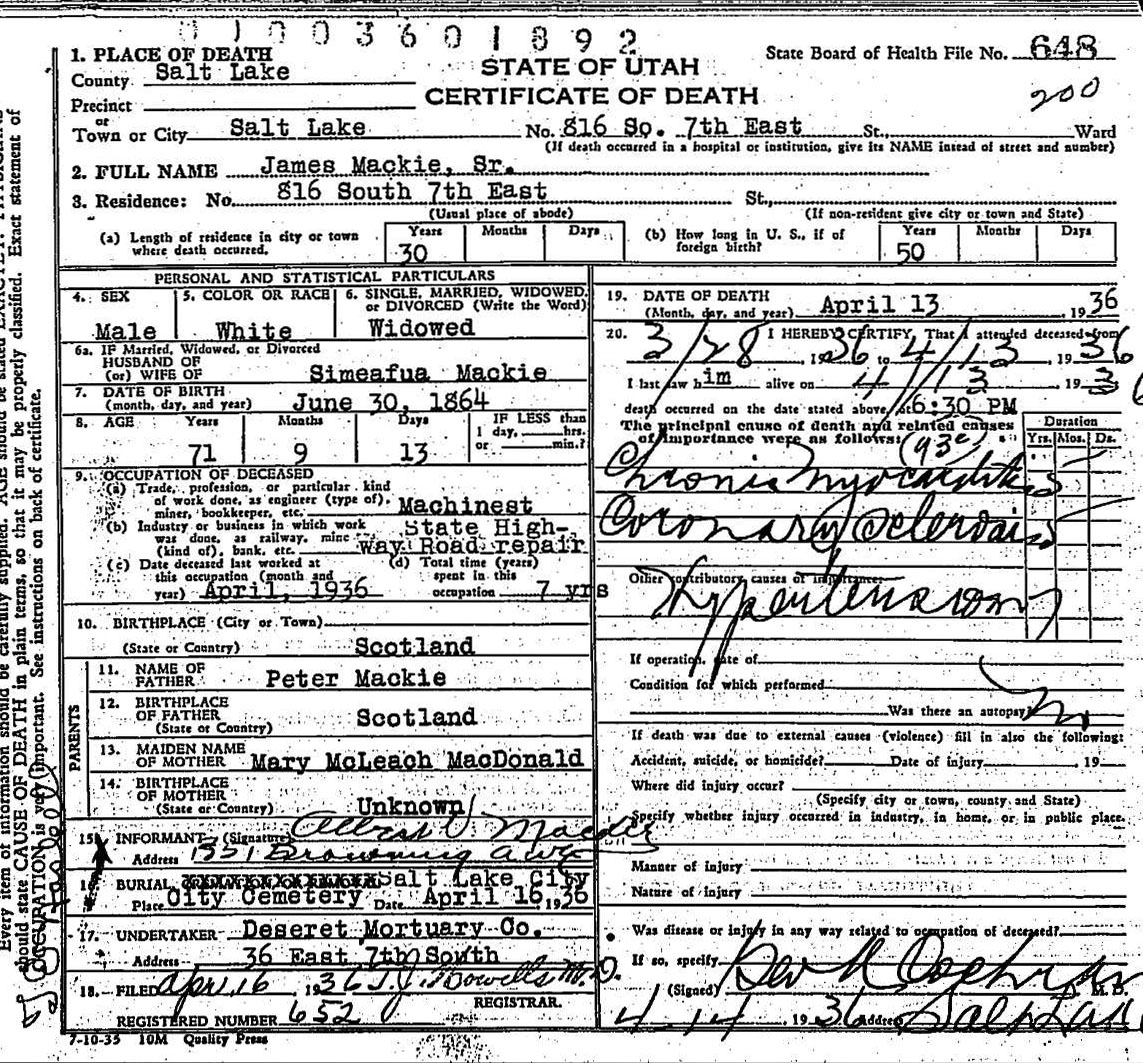 01003601892
State Board of Health File No. 648
200
STATE OF UTAH
CERTIFICATE OF DEATH
1. PLACE OF DEATH
County Salt Lake
Precinct
or
Town or City Salt Lake No. 816 So. 7th East St., Ward
(If death occurred in a hospital or institution, give its NAME instead of street and number)
2. FULL NAME James Mackie, Sr.
3. Residence: No. 816 South 7th East St.,
(Usual place of abode) (If non-resident give city or town and State)
(a) Length of residence in city or town where death occurred. Years 30 Months Days
(b) How long in U. S., if of foreign birth? Years 50 Months Days
PERSONAL AND STATISTICAL PARTICULARS
4. SEX Male
5. COLOR OR RACE White
6. SINGLE, MARRIED, WIDOWED, or DIVORCED (Write the Word) Widowed
6a. IF Married, Widowed, or Divorced
HUSBAND OF
(or) WIFE OF Simeafua Mackie
7. DATE OF BIRTH
(month, day, and year) June 30, 1864
8. AGE Years 71 Months 9 Days 13 IF LESS than 1 day, hrs. or min.?
9. OCCUPATION OF DECEASED
(a) Trade, profession, or particular kind
of work done, as engineer (type of),
miner, bookkeeper, etc. Machinest
(b) Industry or business in which work
was done, as railway, mine
(kind of), bank, etc. State High-
way Road repair
(c) Date deceased last worked at
this occupation (month and
year) April, 1936
(d) Total time (years)
spent in this
occupation 7 yrs
10. BIRTHPLACE (City or Town)
(State or Country) Scotland
PARENTS
11. NAME OF
FATHER Peter Mackie
12. BIRTHPLACE
OF FATHER Scotland
(State or Country)
13. MAIDEN NAME
OF MOTHER Mary McLeach MacDonald
14. BIRTHPLACE
OF MOTHER
(State or Country) Unknown
15. INFORMANT (Signature) Albert
Address 1551 Browning Ave
16. BURIAL Salt Lake City
Place City Cemetery Date April 16, 1936
17. UNDERTAKER Deseret Mortuary Co.
Address 36 East 7th South
18. FILED Apr. 16 1936 T.J. Howells M.D.
REGISTRAR.
REGISTERED NUMBER 652
7-10-35 10M Quality Press
19. DATE OF DEATH
(Month, day, and year) April 13, 1936
20. I HEREBY CERTIFY, That I attended deceased from
3/28, 1936 to 4/13, 1936
I last saw him alive on 4/13 1936
death occurred on the date stated above, at 6:30 PM
The principal cause of death and related causes
of importance were as follows: (93c)
Duration
Yrs. Mos. Ds.
Chronic Myocarditis
Coronary Sclerosis
Other contributory causes of importance:
Hypertension
If operation, date of
Condition for which performed
Was there an autopsy? no
If death was due to external causes (violence) fill in also the following:
Accident, suicide, or homicide? Date of injury 19
Where did injury occur?
(Specify city or town, county and State)
Specify whether injury occurred in industry, in home, or in public place.
Manner of injury
Nature of injury
Was disease or injury in any way related to occupation of deceased?
If so, specify
(Signed) Cochran M. D.
4-14, 1936 Address Salt Lake
Every item of information should be carefully supplied. AGE should be stated EXACTLY. PHYSICIANS
should state CAUSE OF DEATH in plain terms, so that it may be properly classified. Exact statement of
OCCUPATION is very important. See instructions on back of certificate.